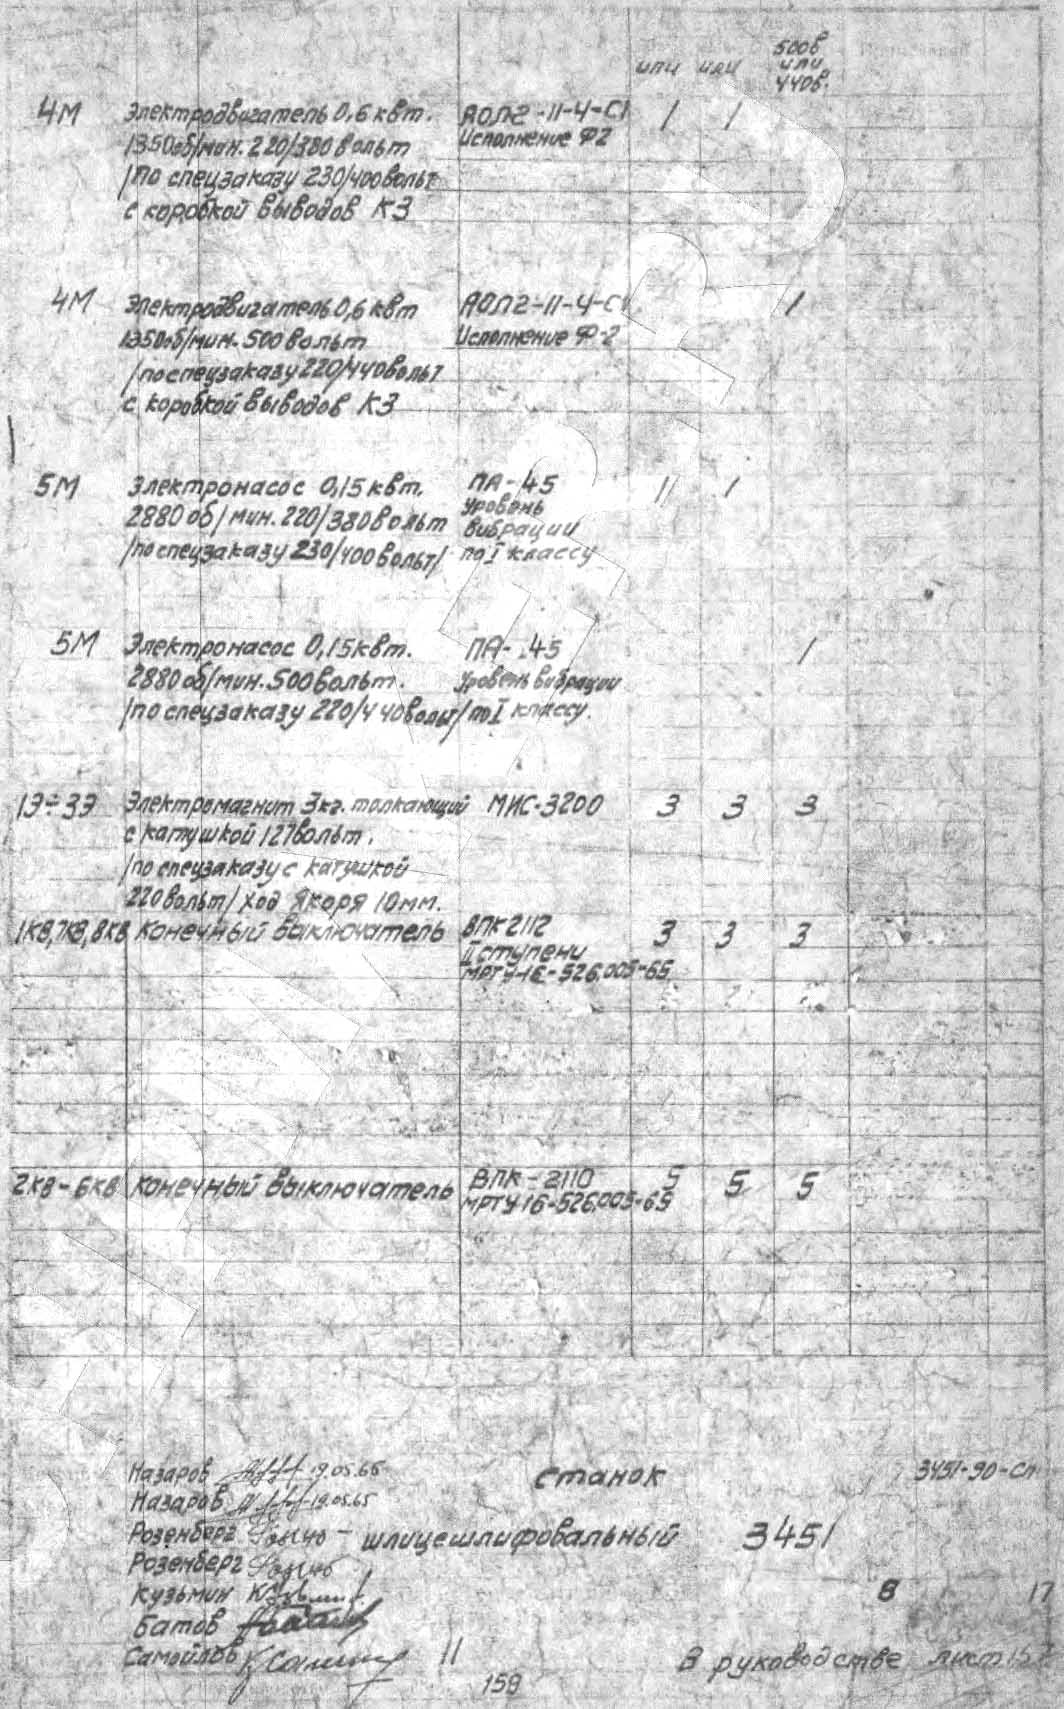 500в
или или или
440в.
4М Электродвигатель 0,6 квт. АОЛ2-11-4-С1 1 1
1350об/мин. 220/380 вольт Исполнение Ф2
/по спецзаказу 230/400вольт
с коробкой выводов К3
4М Электродвигатель 0,6 квт АОЛ2-11-4-С1 1
1350об/мин. 500 вольт Исполнение Ф-2
/по спецзаказу 220/440вольт
с коробкой выводов К3
5М Электронасос 0,15 квт. ПА-45 11 1
2880 об/мин. 220/380 вольт уровень
вибрации
/по спецзаказу 230/400 вольт/ по I классу
5М Электронасос 0,15 квт. ПА-45 1
2880 об/мин. 500 вольт. уровень вибрации
/по спецзаказу 220/440вольт/ по I классу.
1Э÷3Э Электромагнит 3кг. толкающий МИС-3200 3 3 3
с катушкой 127вольт.
/по спецзаказу с катушкой
220 вольт/ ход якоря 10мм.
1КВ,7КВ,8КВ Конечный выключатель ВПК 2112 3 3 3
II ступени
МРТУ-16-526.005-65
2КВ-6КВ Конечный выключатель ВПК-2110 5 5 5
МРТУ-16-526.005-65
Назаров 19.05.65 станок 3451-90-СП
Назаров 19.05.65
Розенберг шлицешлифовальный 3451
Розенберг
Кузьмин 8 17
Батов
Самойлов 11 В руководстве лист
159